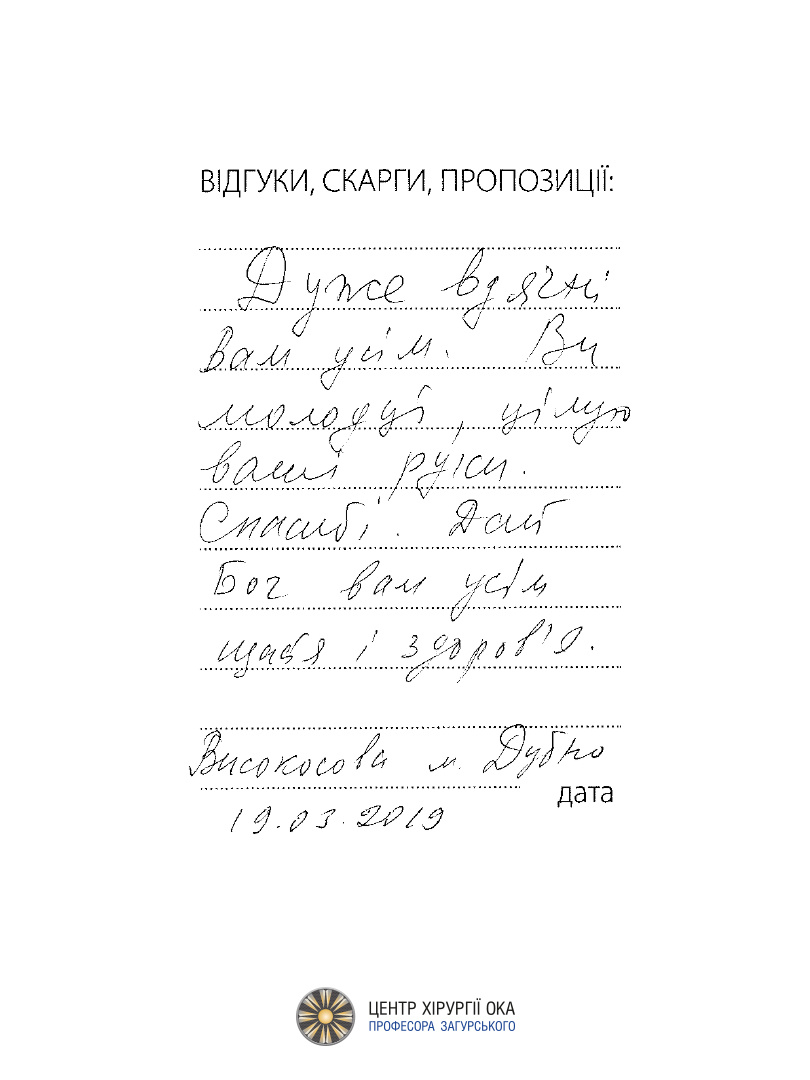 ВІДГУКИ, СКАРГИ, ПРОПОЗИЦІЇ:
Дуже вдячні
вам усім. Ви
молодці, цілую
ваші руки.
Спасибі. Дай
Бог вам усім
щастя і здоров'я.
Високосова м. Дубно
дата
19.03.2019
ЦЕНТР ХІРУРГІЇ ОКА
ПРОФЕСОРА ЗАГУРСЬКОГО